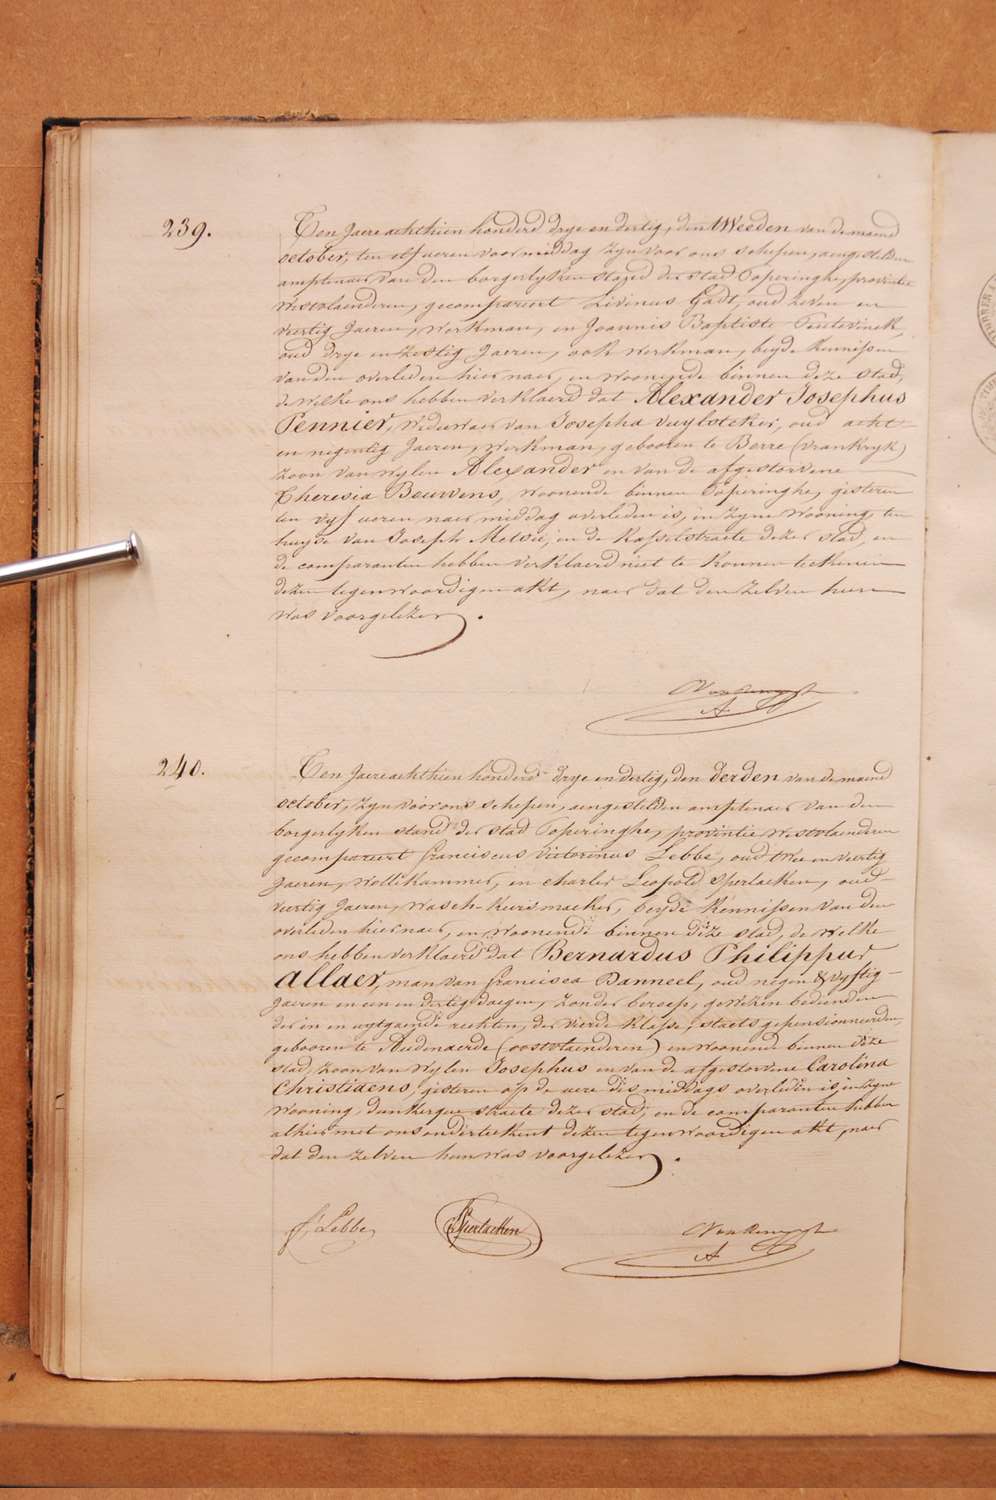 239.
Ten Jaere achthien honderd drye en dertig, den tWeeden van de maend
october, ten elf ueren voormiddag zyn voor ons schepen, aengestelden
amptenaer van den borgerlyken stand der stad Poperinghe, provintie
Westvlaenderen, gecompareert Livinus Gadt, oud zeven en
veertig Jaeren, Werkman, en Joannis Baptiste
oud drye en zestig Jaeren, ook Werkman, beyde kennissen
van den overleden hier naer, en Woonende binnen deze stad,
de Welke ons hebben verklaerd dat Alexander Josephus
Pennier, Weduwaer van Josepha Vuylsteker, oud acht
en negentig Jaeren, Werkman, gebooren te Berre (Vrankryk)
zoon van Wylen Alexander en van de afgestorvene
Theresia Beuwens, Woonende binnen Poperinghe, gisteren
ten vyf ueren naer middag overleden is, in zyne Wooning, ten
huyse van Joseph in de Kasselstraete dezer stad, en
de comparanten hebben verklaerd niet te konnen teekenen
dezen tegenwoordigen akt, naer dat den zelven hun
Was voorgelezen.
240.
Ten Jaere achthien honderd drye en dertig, den derden van de maend
october, zyn voor ons schepen, aengestelden amptenaer van den
borgerlyken stand der stad Poperinghe, provintie Westvlaenderen
gecompareert Franciscus Victorinus Lebbe, oud twee en veertig
Jaeren, Wollekammer, en Charles Leopold Sperlaeken, oud
veertig Jaeren, Wasch-keirsmaeker, beyde kennissen van den
overleden hier naer, en Woonende binnen deze stad, de Welke
ons hebben verklaerd dat Bernardus Philippus
Allaer, man van Francisca Danneel, oud negen & vyftig
Jaeren en een en dertig daegen, zonder beroep, gewezen bedienden
der in en uytgaende rechten, der vierde klasse, staets gepensionneerden,
gebooren te Audenaerde (oostvlaenderen) en Woonende binnen deze
stad, zoon van Wylen Josephus en van de afgestorvene Carolina
Christiaens, gisteren op de uere des middags overleden is, in zyne
Wooning Dunkerque straete dezer stad, en de comparanten hebben
alhier met ons onderteekent dezen tegenwoordigen akt, naer
dat den zelven hun Was voorgelezen.
F. Lebbe
Sperlaeken